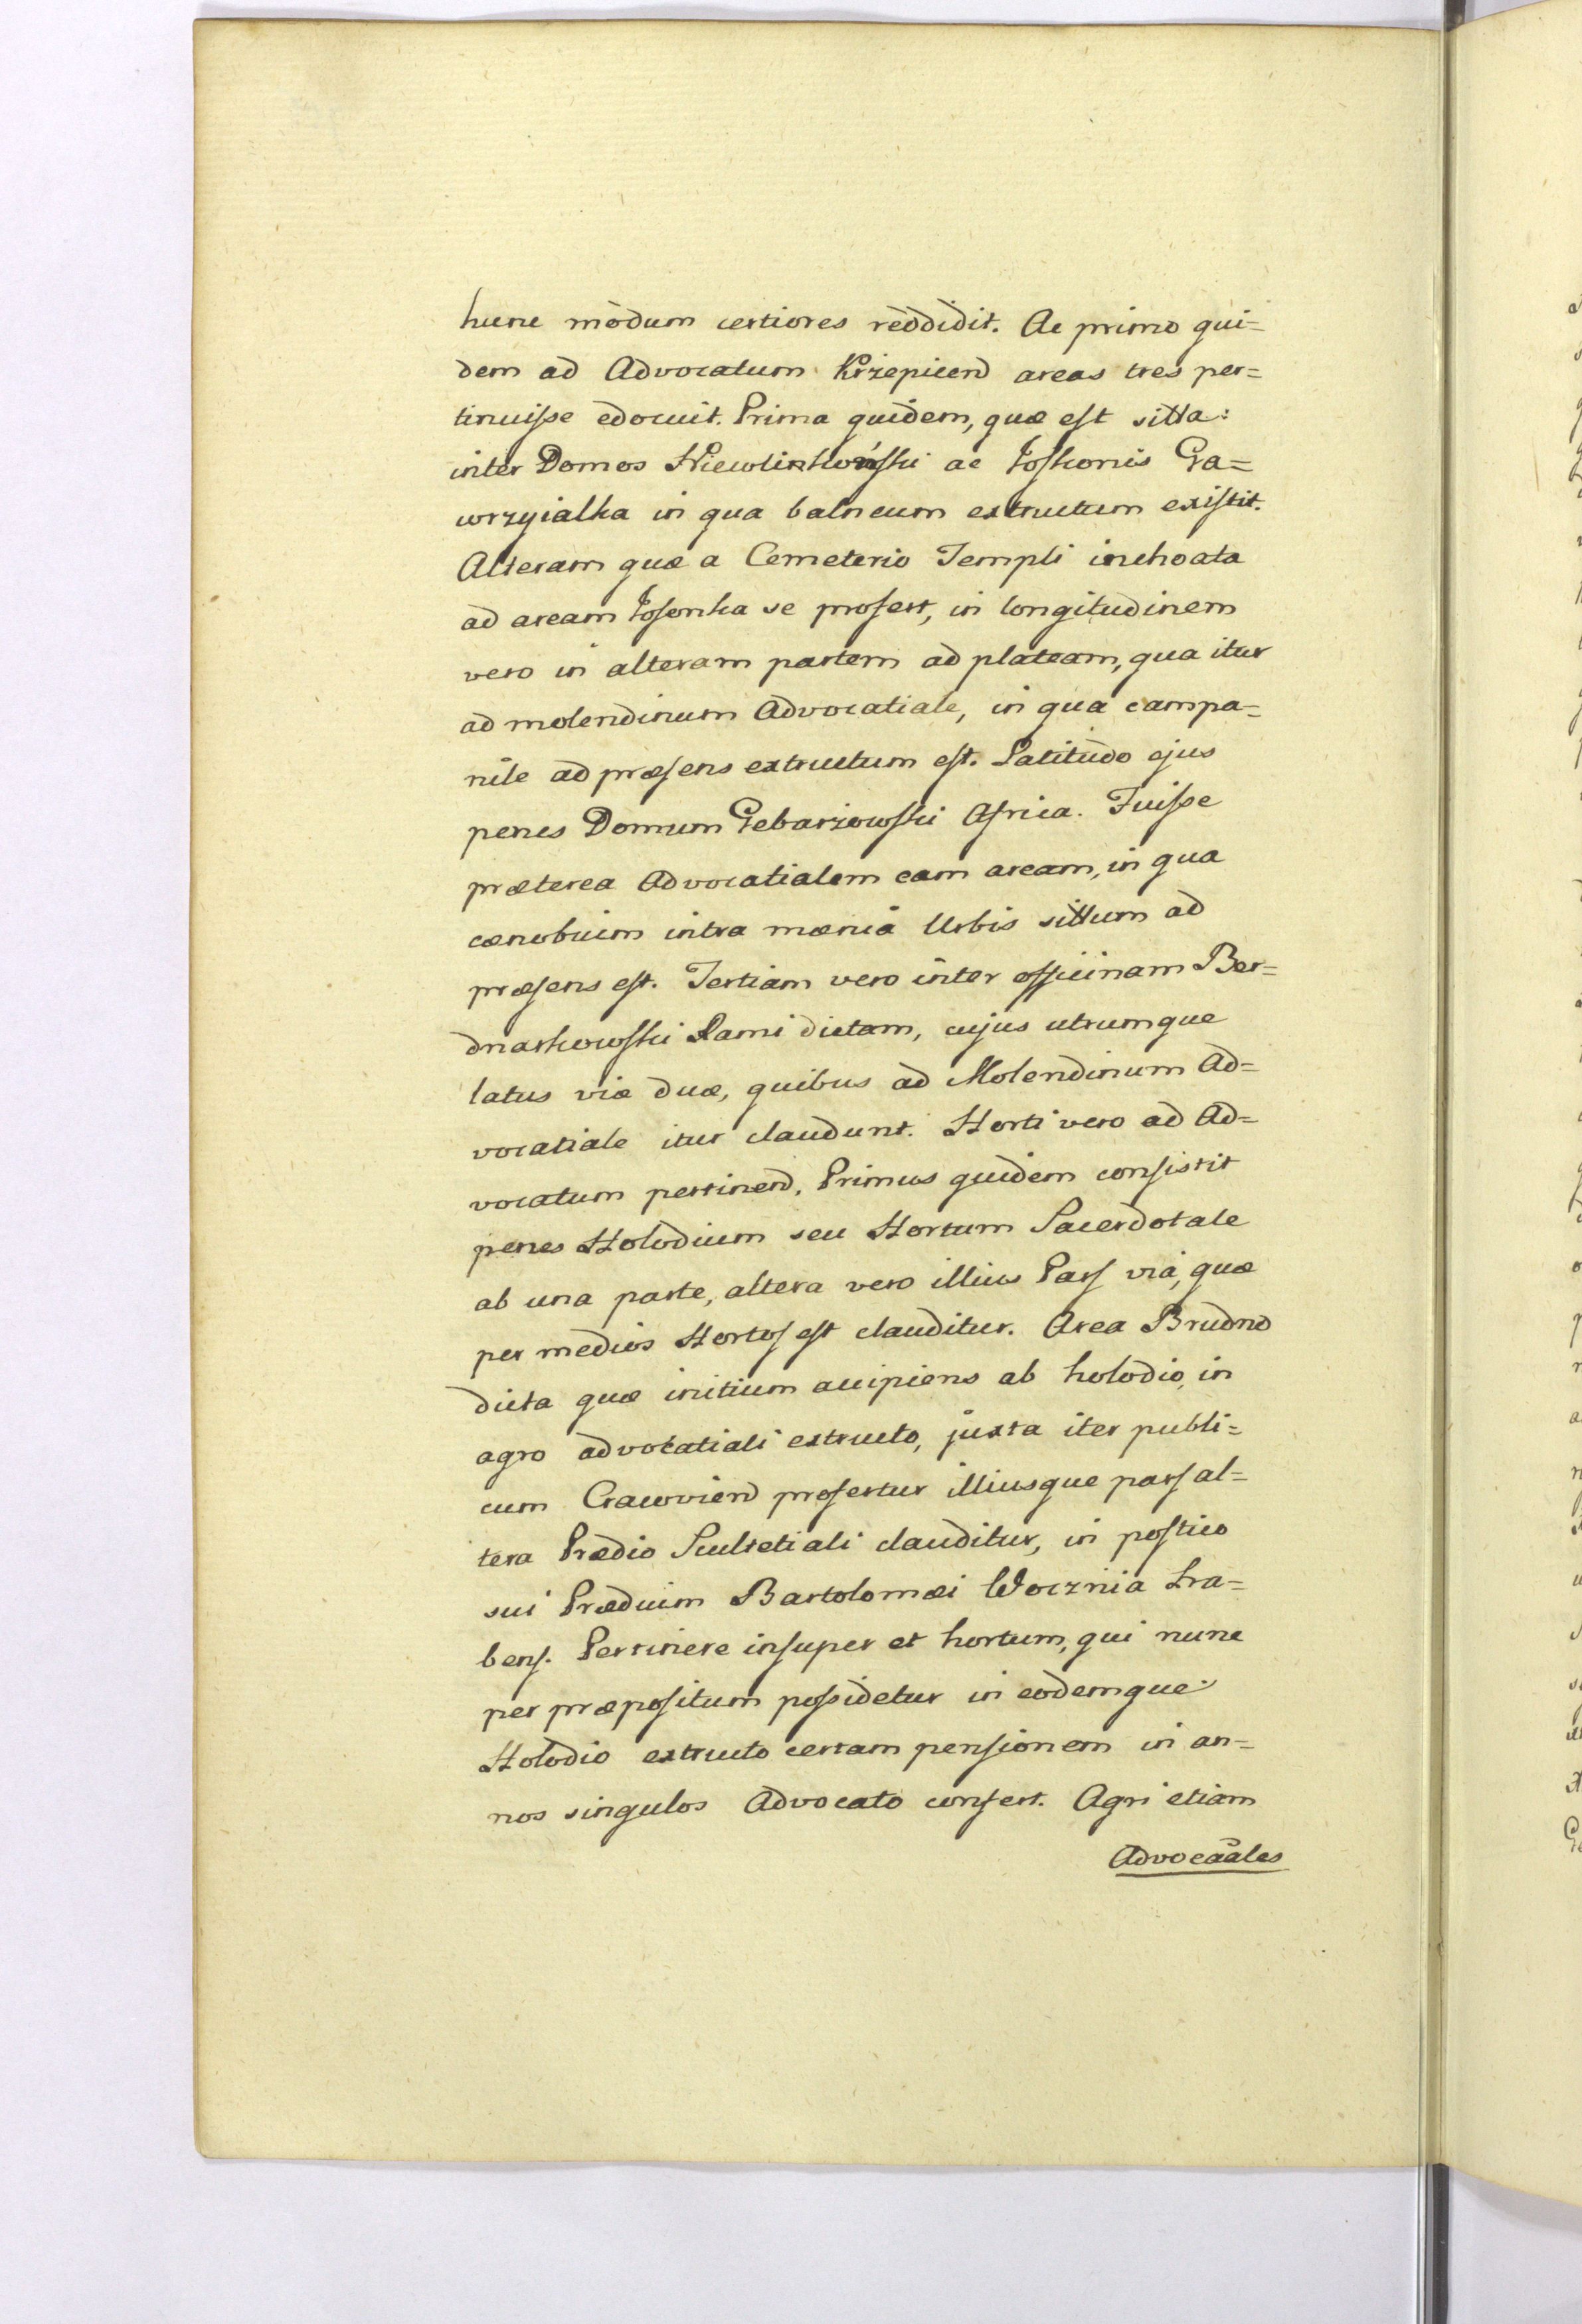 hunc modum certiores reddidit. Ac primo qui=
dem ad Advocatum Krzepicen areas tres per=
tinuisse edocuit. Prima quidem, quæ est sitta:
inter Domos Niewlinkoński ac Joskonis Ga=
wrzyialka in qua balneum extructum existit.
Alteram quæ a Cemeterio Templi inchoata
ad aream Josonka se profert, in longitudinem
vero in alteram partem ad plateam, qua itur
ad molendinum Advocatiale, in qua campa=
nile ad præsens extructum est. Latitudo ejus
penes Domum Gebarzowski Africa. Fuisse
præterea Advocatialem eam aream, in qua
cænobium intra mænia Urbis sittum ad
præsens est. Tertiam vero inter officinam Ber=
dnarkowski Lami dictam, cujus utrumque
latus viæ duæ, quibus ad Molendinum Ad=
vocatiale itur claudunt. Horti vero ad Ad=
vocatum pertinen. Primus quidem consistit
penes Holodium seu Hortum Sacerdotale
ab una parte, altera vero illius Pars via, quæ
per medios Hortos est clauditur. Area Brudno
dicta quæ initium accipiens ab holodio, in
agro advocatiali extructo, juxta iter publi=
cum Cracovien profertur illiusque pars al=
tera Prædio Scultetiali clauditur, in postico
sui Prædium Bartolomæi Wocznia
bens. Pertinere insuper et hortum, qui nunc
per præpositum possidetur in eodemque
Holodio extructo certam pensionem in an=
nos singulos Advocato confert. Agri etiam
Advocaales